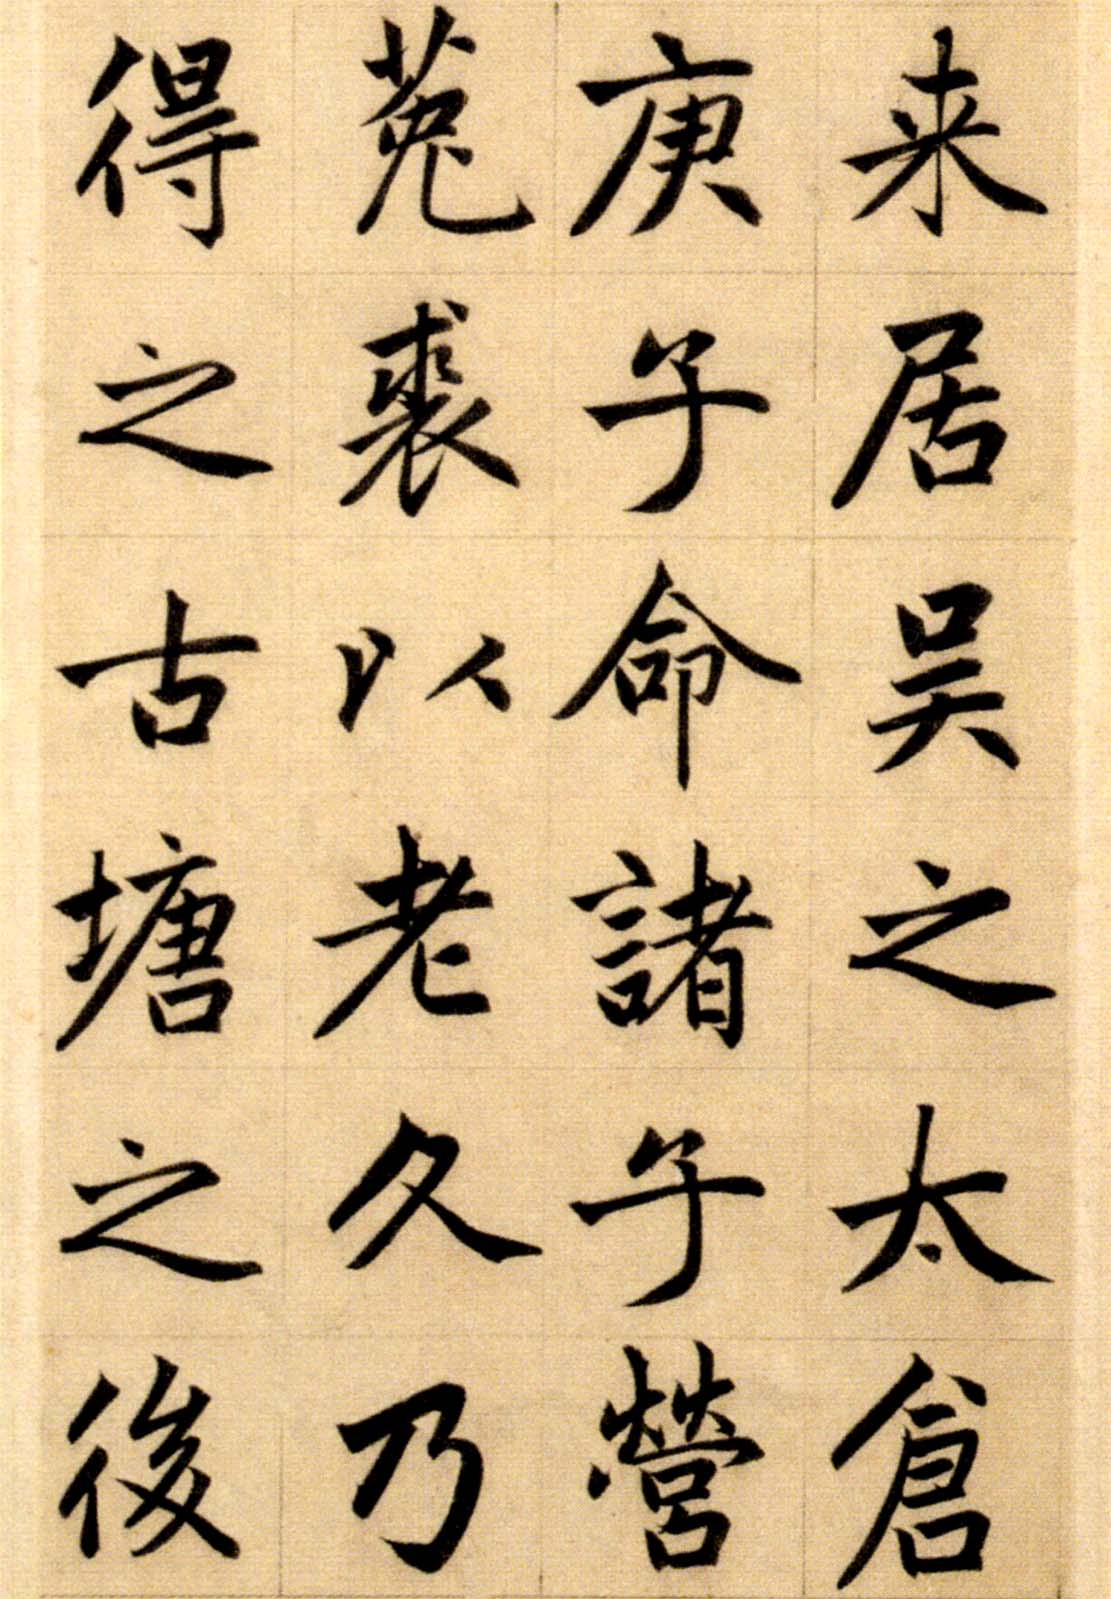 来居吳之太倉
庚子命諸子營
菟裘以老久乃
得之古塘之後